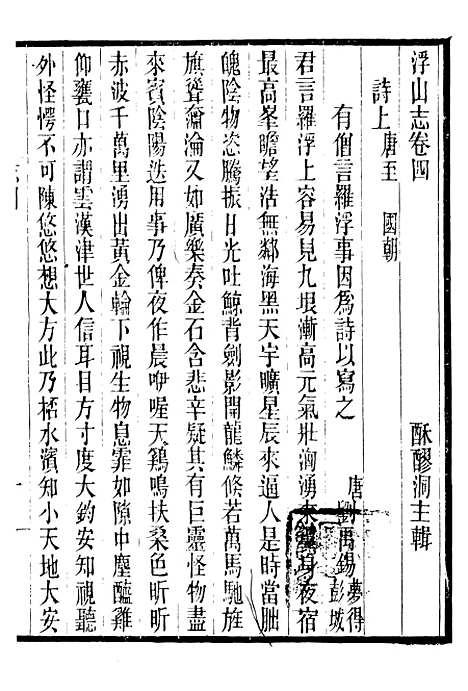 浮山志卷四 酥醪洞主輯
詩上 唐至 國朝
有僧言羅浮事因爲詩以寫之
唐 劉禹錫 夢得 彭城
君言羅浮上容易見九垠漸高元氣壯洶湧來 身夜宿
最高峯瞻望浩無鄰海黑天宇曠星辰來逼人是時當朏
魄陰物恣騰振日光吐鯨背劍影開龍鱗倐若萬馬馳旌
旗聳奫淪又如廣樂奏金石含悲辛疑其有巨靈怪物盡
來賓陰陽迭用事乃俾夜作晨咿喔天鷄鳴扶桑色昕昕
赤波千萬里湧出黃金輪下視生物息霏如隙中塵醯雞
仰甕口亦謂雲漢津世人信耳目方寸度大鈞安知視聽
外怪愕不可陳悠悠想大方此乃桮水濱知小天地大安